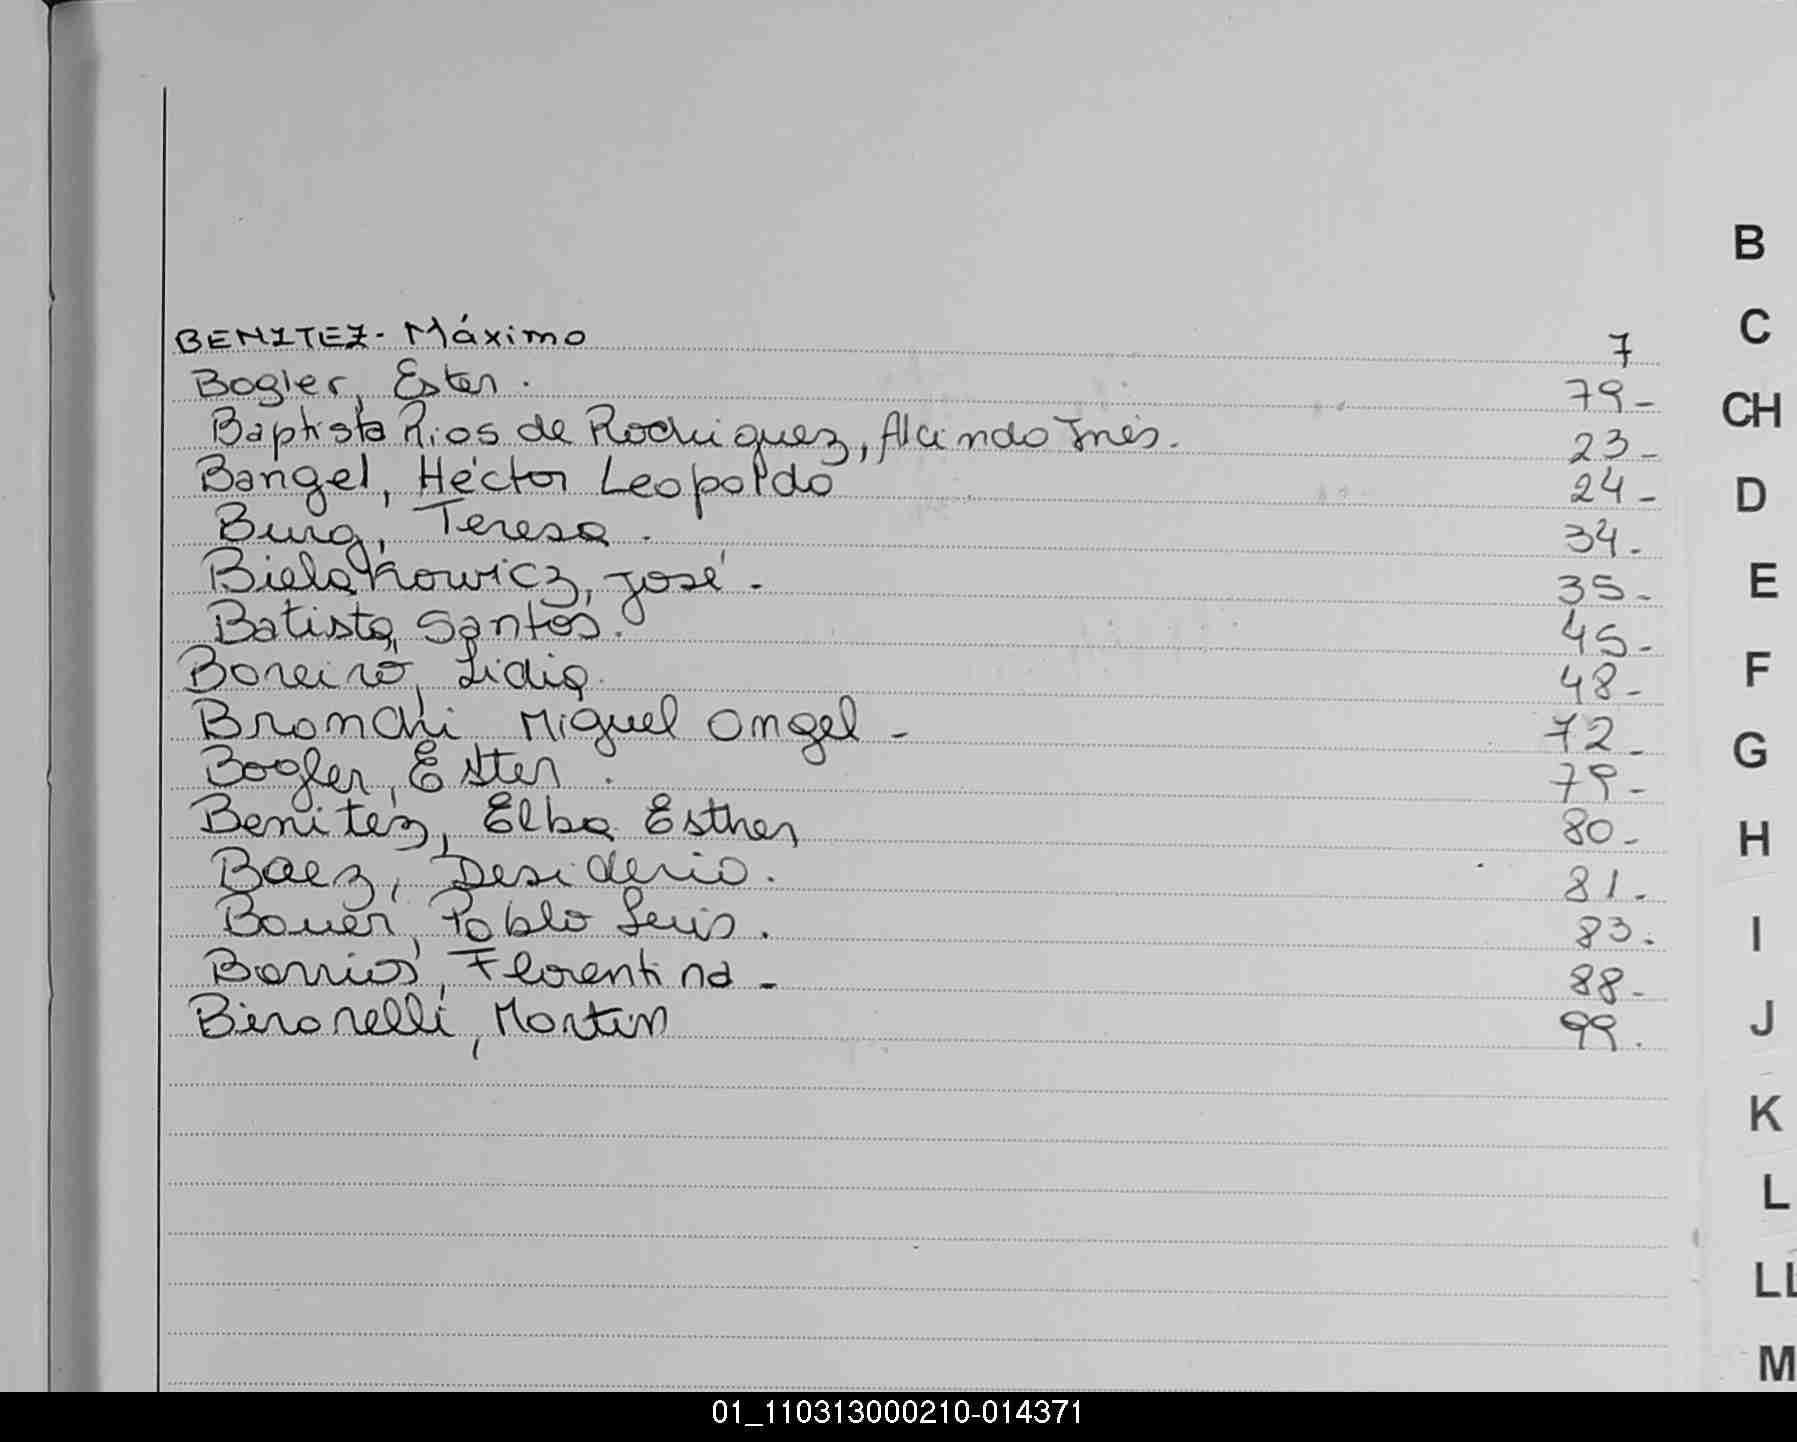 BENITEZ - Máximo 7
Bogler, Ester. 79-
Baptista Rios de Rodriguez, Alcindo Inés. 23-
Bangel, Héctor Leopoldo 24-
Burg, Teresa. 34-
Bielakowicz, José. - 35-
Batista, Santos. 45-
Boreiro, Lidia. 48-
Bronchi Miguel Angel - 72-
Bogler, Ester. 79-
Benitez, Elba Esther 80-
Baez, Desiderio. 81-
Bauer, Pablo Luis. 83.
Barrios, Florentina - 88-
Bironelli, Martin 99.
B
C
CH
D
E
F
G
H
I
J
K
L
LL
M
01_110313000210-014371